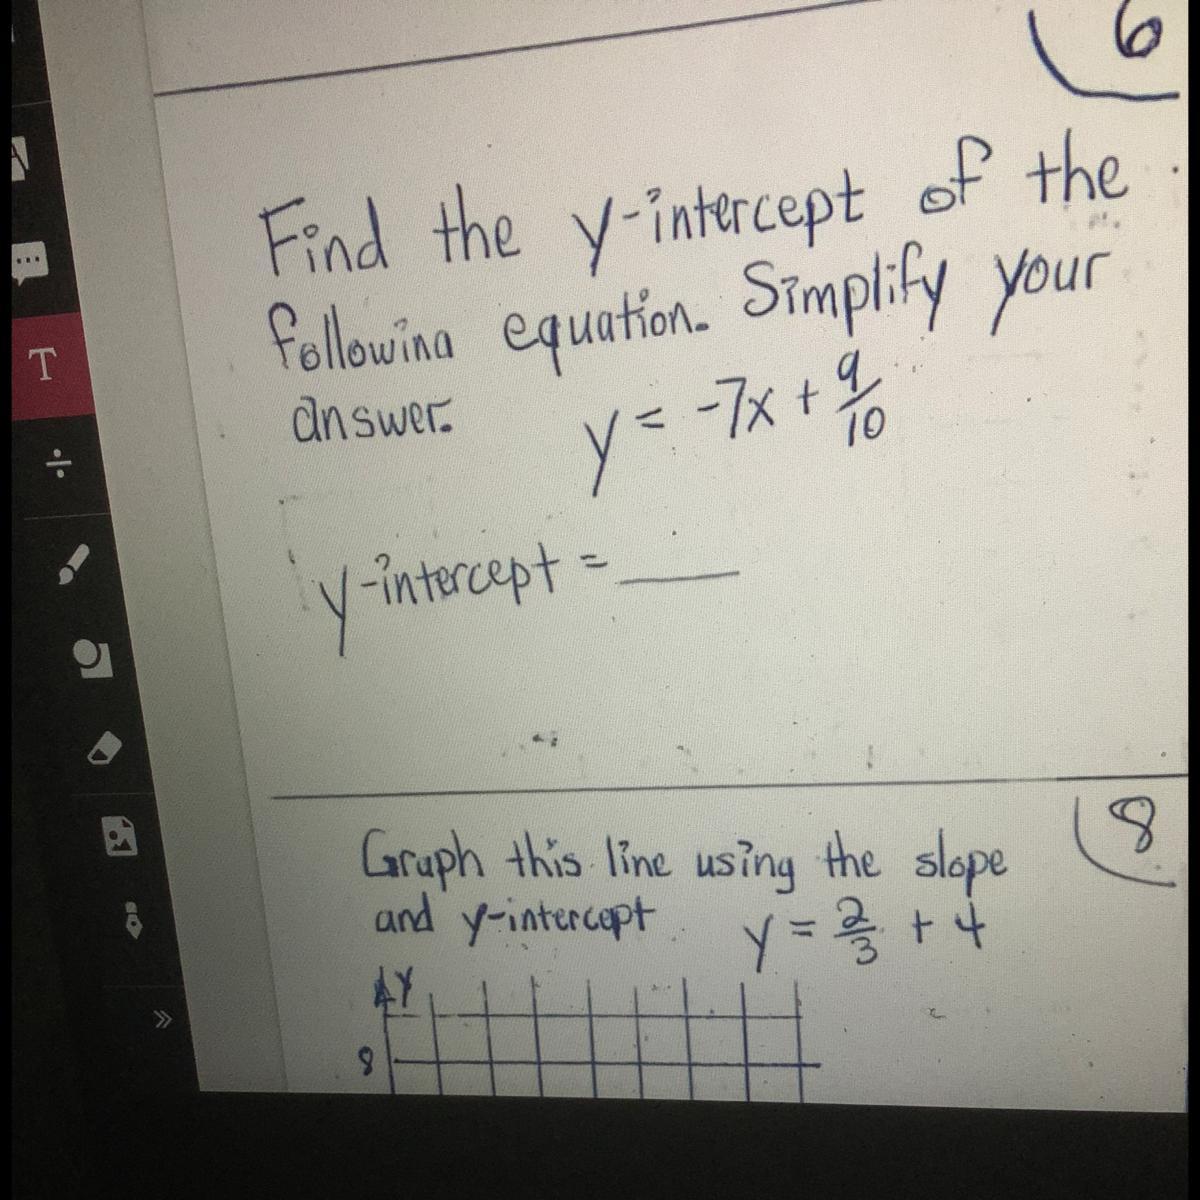 6
Find the y-intercept of the
followina equation. Simplify your
answer. y = -7x + 9/10
y-intercept = ____
8
Graph this line using the slope
and y-intercept y = 2/3 + 4
Y
8
T